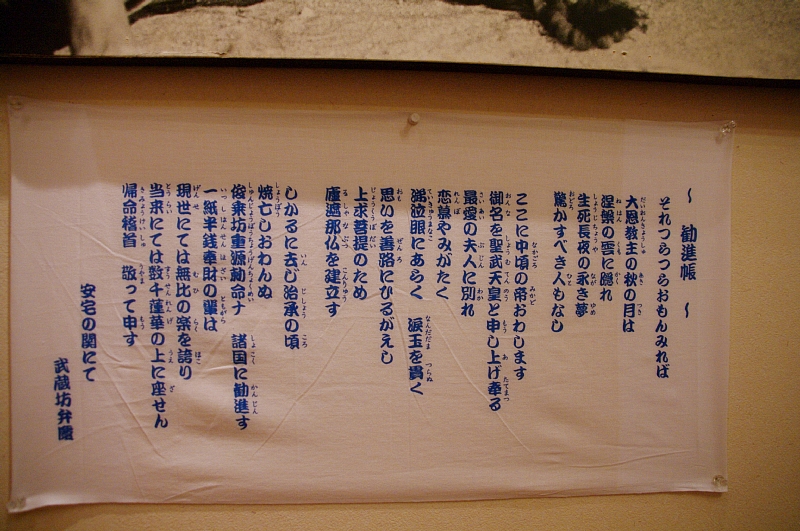 ～ 勧進帳 ～
それつらつらおもんみれば
大恩教主の秋の月は
涅槃の雲に隠れ
生死長夜の永き夢
驚かすべき人もなし
ここに中頃の帝おわします
御名を聖武天皇と申し上げ奉る
最愛の夫人に別れ
恋慕やみがたく
涕泣眼にあらく 涙玉を貫く
思いを善路にひるがえし
上求菩提のため
盧遮那仏を建立す
しかるに去じ治承の頃
焼亡しおわんぬ
俊乗坊重源勅命ナ 諸国に勧進す
一紙半銭奉財の輩は
現世にては無比の楽を誇り
当来にては数千蓮華の上に座せん
帰命稽首 敬って申す
安宅の関にて
武蔵坊弁慶